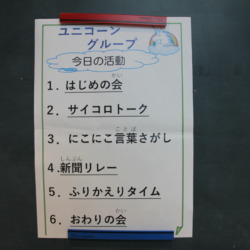 ユニコーン
グループ
今日の活動
1. はじめの会
かい
2. サイコロトーク
3. にこにこ言葉さがし
ことば
4. 新聞リレー
しんぶん
5. ふりかえりタイム
6. おわりの会
かい